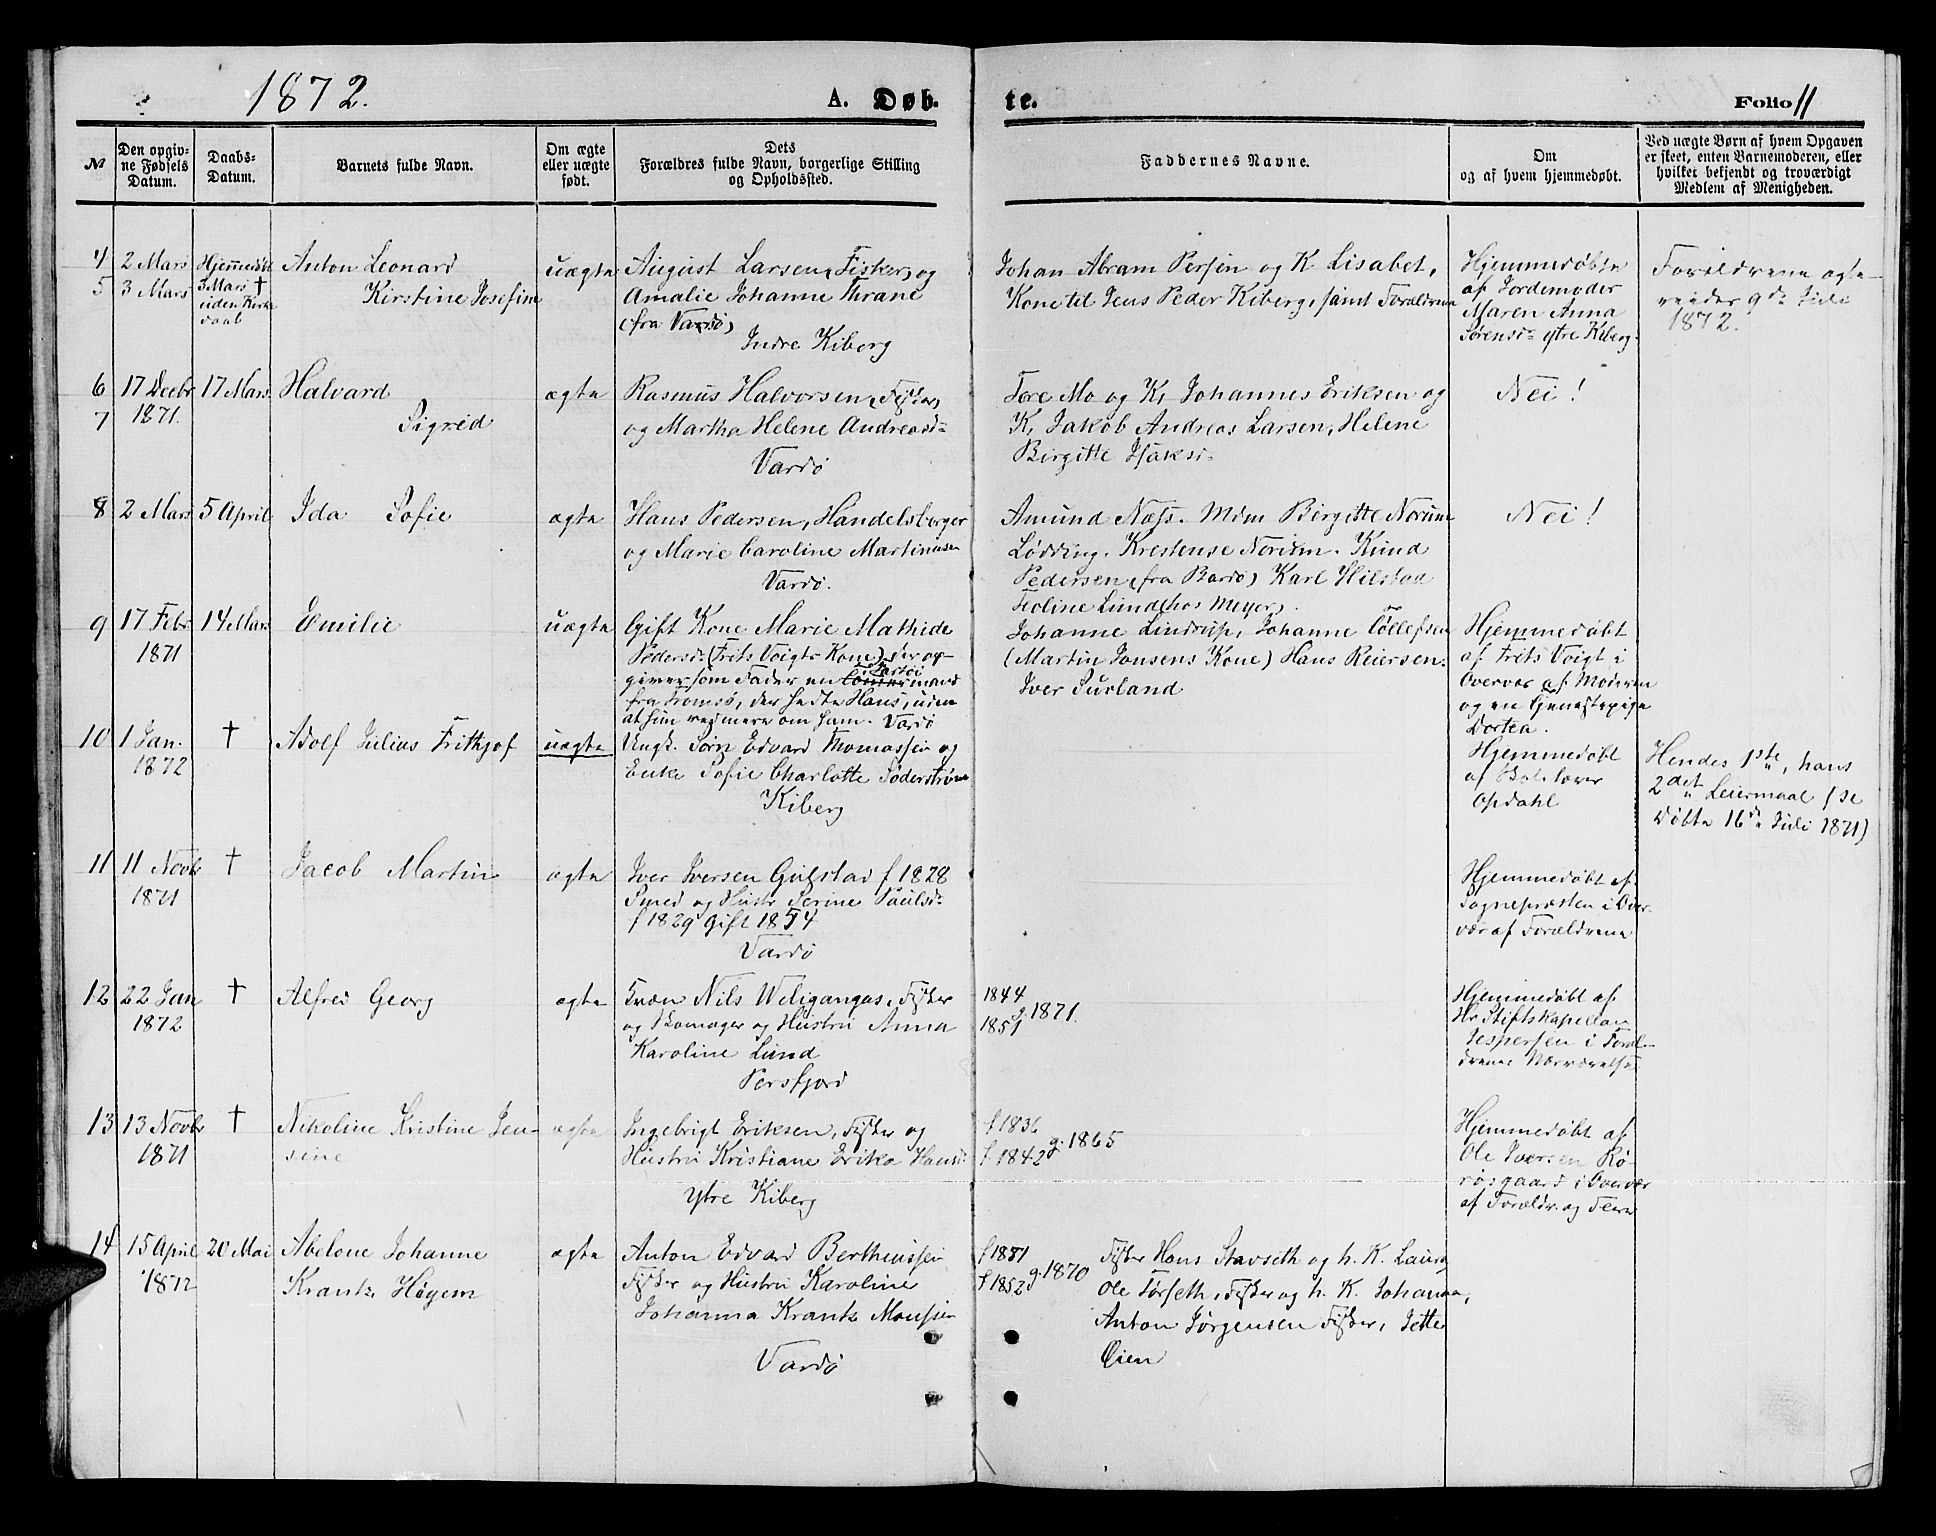 1872.
A. Døb-
te.
Folio 11
№
Den opgiv-
ne Fødsels
Datum.
Daabs-
Datum.
Barnets fulde Navn.
Om ægte
eller uægte
født.
Dets
Forældres fulde Navn, borgerlige Stilling
og Opholdssted.
Faddernes Navne.
Om
og af hvem hjemmedøbt.
Ved uægte Børn af hvem Opgaven
er skeet, enten Barnemoderen, eller
hvilket bekjendt og troværdigt
Medlem af Menigheden.
4
5
2 Mars
3 Mars
Hjemmedøbt
3 Mars †
uden Kirke
daab
Anton Leonard
Kirstine Josefine
uægte
August Larsen, Fisker, og
Amalie Johanne Thrane
(fra Vardø)
Indre Kiberg
Johan Abram Persen og K Lisabet,
Kone til Jens Peder Kiberg, samt Forældrene
Hjemmedøbte
af Jordemoder
Maren Anna
Sørensd. ytre Kiberg.
Forældrene ægte-
viede 9de Juli
1872.
6
7
17 Decbr
1871.
17 Mars
Halvard
Sigrid
ægte
Rasmus Halvorsen, Fisker,
og Martha Helene Andreasd.
Vardø
Tore Mo og K, Johannes Eriksen og
K, Jakob Andreas Larsen, Helene
Birgitte Isaksd.
Nei!
8
2 Mars
5 April
Ida Sofie
ægte
Hans Pedersen, Handelsborger
og Marie Caroline Martinusen
Vardø.
Amund Næss. Mdm Birgitte Norum
Lødding. Krestense Norum. Knud
Pedersen (fra Bardø) Karl Hilstad
Feoline Lund (hos Meyer).
Nei!
9
17 Febr
1871
14 Mars
Emilie
uægte
Gift Kone Marie Mathide
Pedersd. (Frits Voigts Kone), der op-
giver som Fader en mand
fra Tromsø, der hedte Hans, uden
at hun ved mere om ham. Vardø
Johanne Lindrup, Johanne Tollefsen
(Martin Jonsens Kone) Hans Reiersen.
Iver Surland
Hjemmedøbt
af Frits Voigt i
Overvær af Moderen
og en Tjenestepige
Dortea.
10
1 Jan.
1872
†
Adolf Julius Frithjof
uægte
Ungk. Sørn Edvard Thomassen og
Enke Sofie Charlotte Søderstrøm
Kiberg
Hjemmedøbt
af Skolelærer
Opdahl
Hendes 1ste, hans
2det Leiermaal (se
Døbte 16de Juli 1871)
11
11 Novbr
1871
†
Jacob Martin
ægte
Iver Iversen Gulstad f 1828
Smed og Hustr Serine Paulsd.
f 1829 gift 1854
Vardø
Hjemmedøbt af
Sognepresten i Over-
vær af Forældrene
12
22 Jan
1872
†
Alfred Georg
ægte
Kvæn Nils Weligangas, Fisker
og Skomager og Hustru Anna
Karoline Lund
Persfjord
1844
1851
g. 1871.
Hjemmedøbt af
Hr Stiftskapellan
Jespersen i Foræl-
drenes Nærværelse
13
13 Novbr
1871
†
Nikoline Kristine Jen-
sine
ægte
Ingebrigt Eriksen, Fisker og
Hustru Kristiane Erika Hansd.
ytre Kiberg
f 1836
f 1842
g. 1865
Hjemmedøbt af
Ole Iversen Rø-
rosgaard i Overvær
af Forældr. og Flere
14
15 April
1872
20 Mai
Abelone Johanne
Krantz Høgem
ægte
Anton Edvard Berthiussen
Fisker og Hustru Karoline
Johanna Krantz Monsen
Vardø
f 1851
f 1852
g. 1870
Fisker Hans Stavseth og h. K. Laura
Ole Torseth, Fisker og h. K. Johanna,
Anton Jørgensen Fisker, Jette
Øien